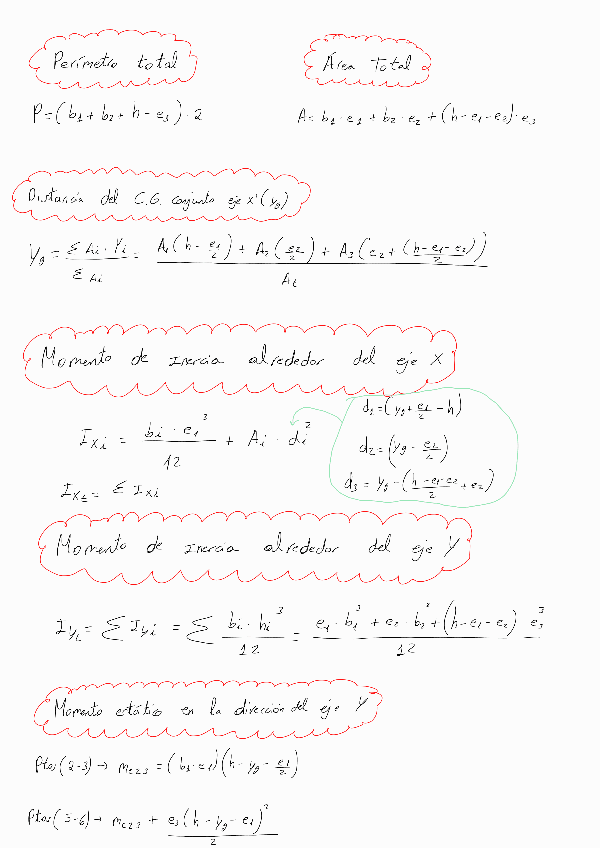 Perímetro total
Área Total
P=(b1+b2+h-e3)·2
A=b1·e1+b2·e2+(h-e1-e2)·e3
Distancia del C.G. conjunto eje x'(yg)
Yg = Σ Ai·Yi / Σ Ai = A1(h-e1/2) + A2(e2/2) + A3(e2+(h-e1-e2)/2)) / At
Momento de Inercia alrededor del eje X
d1=(yg+e1/2-h)
Ixi = bi·ei³/12 + Ai·di²
d2=(yg-e2/2)
d3 = yg-(h-e1-e2/2+e2)
Ixt= Σ Ixi
Momento de inercia alrededor del eje Y
Iyt= Σ Iyi = Σ bi·hi³/12 = e1·b1³+e2·b2³+(h-e1-e2) e3³/12
Momento estático en la dirección del eje Y
Ptos(2-3)→ mc23 =(b1·e1)(h-yg-e1/2)
Ptos( -6)→ mc23 + e3(h-yg-e1)²/2